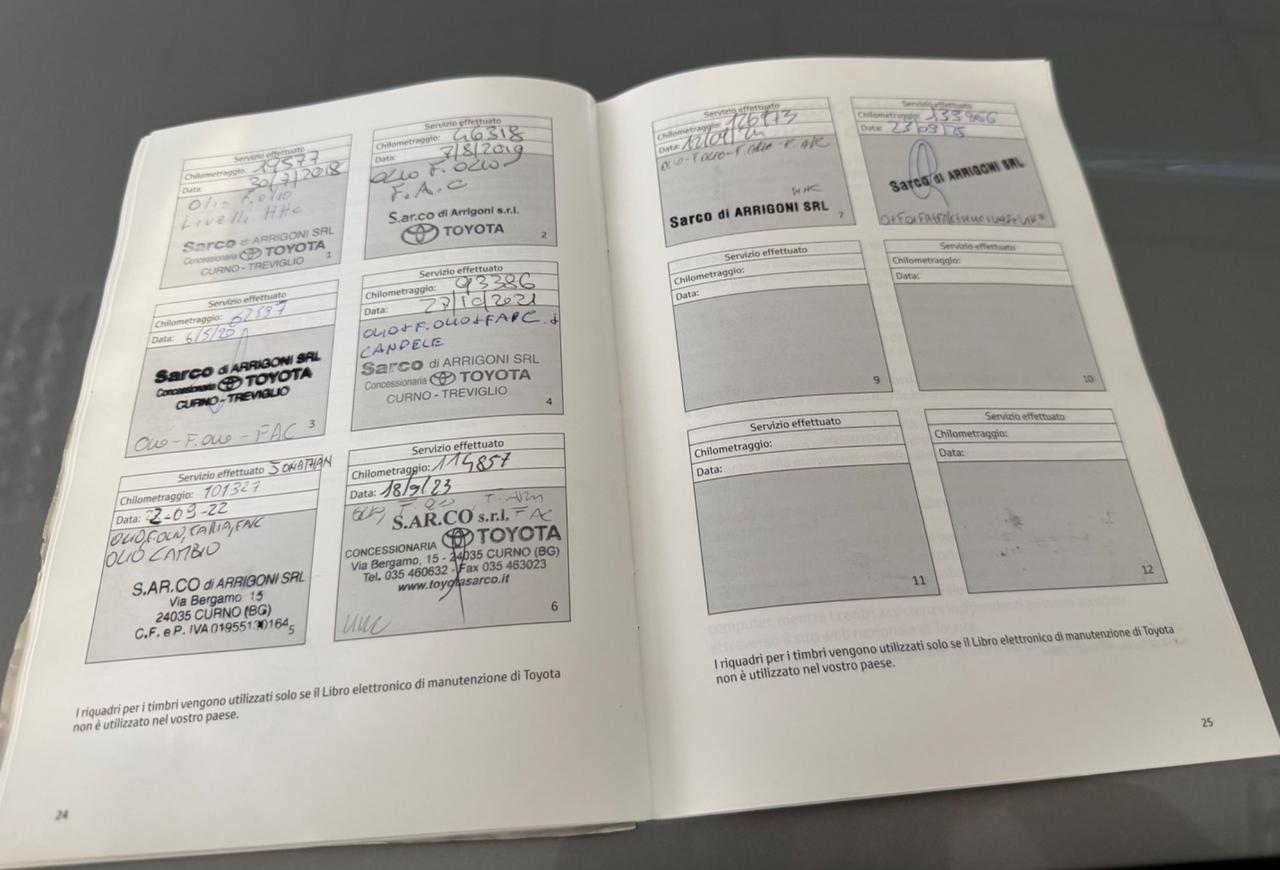 Servizio effettuato
Chilometraggio: 19577
Data: 30/7/2018
Olio F.olio
Livelli HHC
Sarco di ARRIGONI SRL
Concessionaria TOYOTA
CURNO - TREVIGLIO
1
Servizio effettuato
Chilometraggio: 46318
Data: 7/8/2019
OLIO F. OLIO
F.A.C
S.ar.co di Arrigoni s.r.l.
TOYOTA
2
Servizio effettuato
Chilometraggio:
Data: 6/5/20
Sarco di ARRIGONI SRL
Concessionaria TOYOTA
CURNO - TREVIGLIO
3
OLIO - F.OLIO - FAC
Servizio effettuato
Chilometraggio: 93386
Data: 27/10/2021
OLIO+F.OLIO+FAPC.+
CANDELE
Sarco di ARRIGONI SRL
Concessionaria TOYOTA
CURNO - TREVIGLIO
4
Servizio effettuato JONATHAN
Chilometraggio: 101327
Data: 22-09-22
OLIO, F.OLIO, F.ARIA, FAC
OLIO CAMBIO
S.AR.CO di ARRIGONI SRL
Via Bergamo 15
24035 CURNO (BG)
C.F. e P. IVA 01955130164
5
Servizio effettuato
Chilometraggio: 114857
Data: 18/9/23
FAC
S.AR.CO s.r.l.
CONCESSIONARIA TOYOTA
Via Bergamo, 15 - 24035 CURNO (BG)
Tel. 035 460632 - Fax 035 463023
www.toyotasarco.it
6
I riquadri per i timbri vengono utilizzati solo se il Libro elettronico di manutenzione di Toyota
non è utilizzato nel vostro paese.
24
Servizio effettuato
Chilometraggio: 126973
Data:
OLIO - F.OLIO - F.ARIA - F. A/C
HHC
Sarco di ARRIGONI SRL
7
Servizio effettuato
Chilometraggio: 133866
Data: 23/09/25
Sarco di ARRIGONI SRL
Servizio effettuato
Chilometraggio:
Data:
9
Servizio effettuato
Chilometraggio:
Data:
10
Servizio effettuato
Chilometraggio:
Data:
11
Servizio effettuato
Chilometraggio:
Data:
12
I riquadri per i timbri vengono utilizzati solo se il Libro elettronico di manutenzione di Toyota
non è utilizzato nel vostro paese.
25